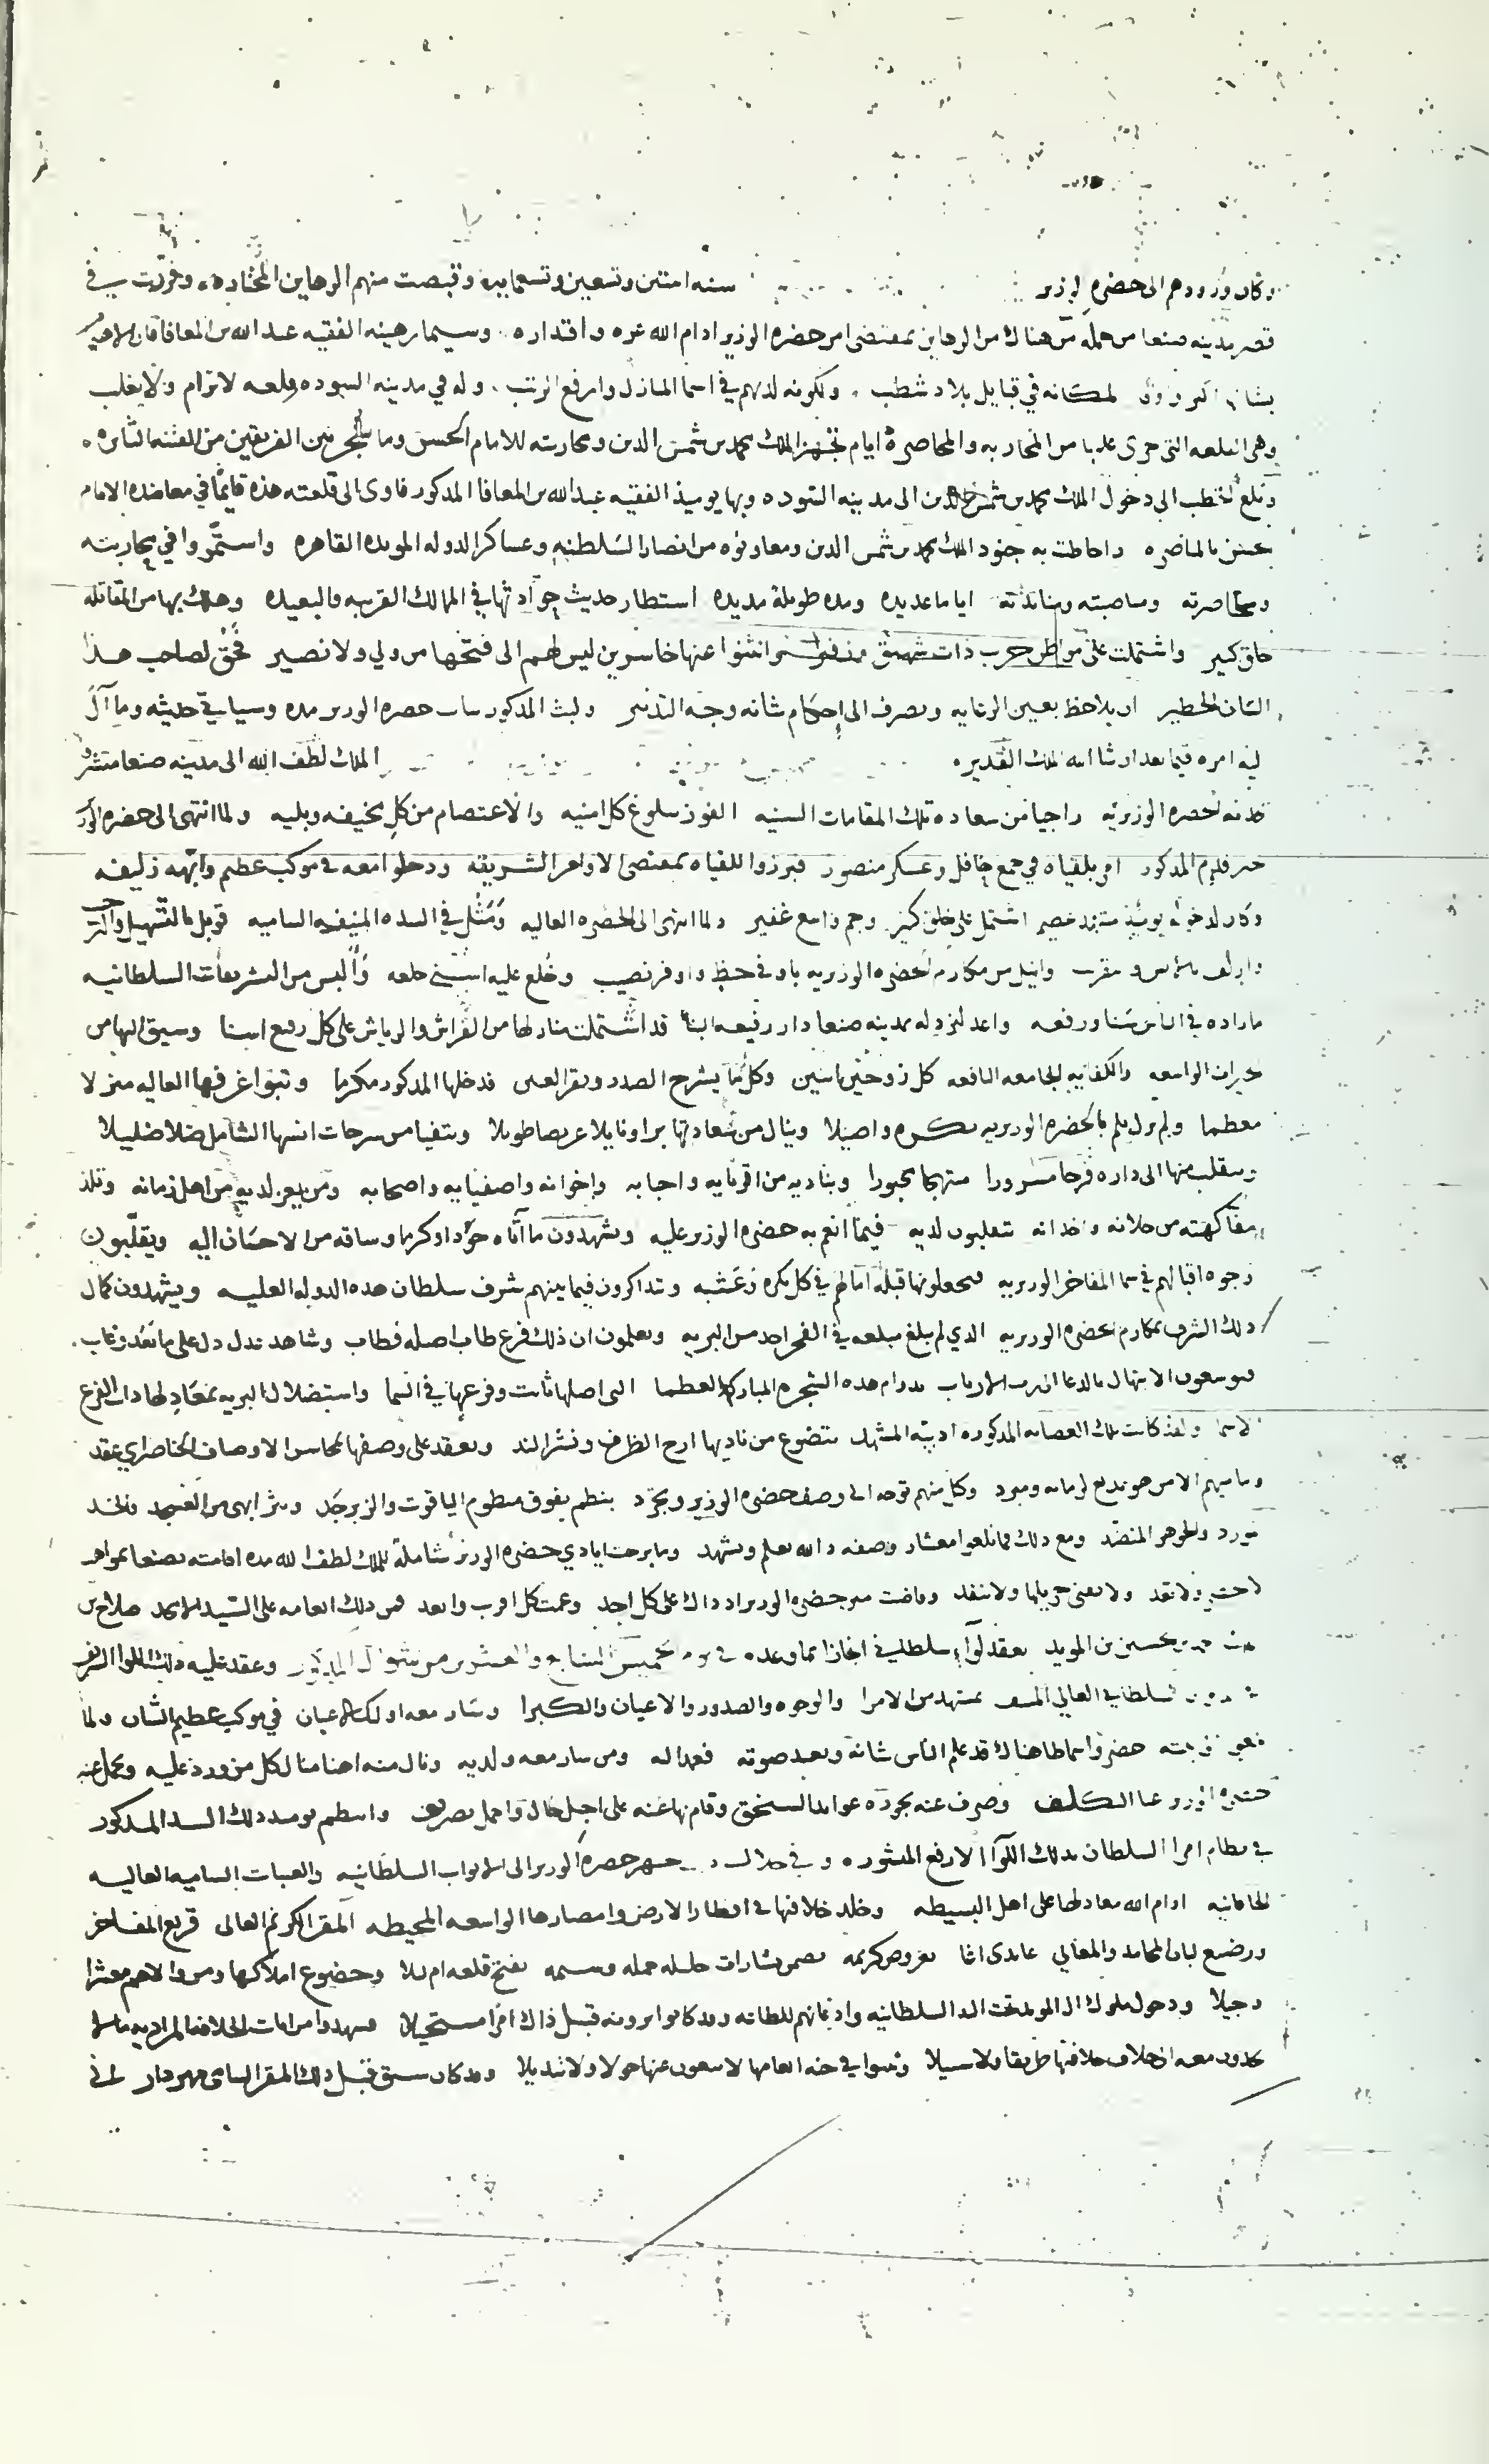 وكان ورودهم الى حضره الوزير سنه اثنتين وتسعين وتسعمايه وقبضت منهم الرهاين المختاره وقررت في
قصر مدينه صنعا من جمله من هناك من الرهاين بمقتضى امر حضره الوزير ادام الله عزه واقتداره وسيما رهينه الفقيه عبد الله بن المعافا فان الاهتمام
بشانه لمكانه في قبايل بلاد شطب ولكونه لديهم في اسما المنازل وارفع الرتب وله في مدينه السوده قلعه لا ترام ولا يغلب
وهى القلعه التى جرى عليها من المحاربه والمحاصره ايام تجهز الملك محمد بن شمس الدين ومحاربته للامام الحسن وما بين الفريقين من الفتنه الثايره
وبلغ الخطب الى دخول الملك محمد بن شمس الدين الى مدينه السوده وبها يوميذ الفقيه عبد الله بن المعافا المذكور فاوى الى قلعته هذه قايمًا في معاضده الامام
حسن بالمناصره واحاطت به جنود الملك محمد بن شمس الدين ومعاونوه من انصار السلطنه وعساكر الدوله المويده القاهره واستمروا في محاربته
ومحاصرته ومناصبته ومنابذته اياما عديده ومده طويله مديده استطار حديث حوادثها في الممالك القريبه والبعيده وهلك بها من المقاتله
خلق كثير واشتملت على مواطن حرب ذات شهيق وزفير انثنوا عنها خاسرين ليس لهم الى فتحها من ولي ولا نصير فحق لصاحب هذا
الشان الخطير ان يلاحظ بعين الرعايه ويصرف الى إحكام شانه وجه التدبير ولبث المذكور بباب حضره الوزير مده وسياتي حديثه وما آل
ليه امره فيما بعد ان شا الله الملك القدير الملك لطف الله الى مدينه صنعا متشرفا
خدمه لحضره الوزيريه راجيا من سعاده تلك المقامات السنيه الفوز ببلوغ كل امنيه والاعتصام من كل مخيفه وبليه ولما انتهى الى حضره الوزير
خبر قدوم المذكور امر بلقياه في جمع حافل وعسكر منصور فبرزوا للقياه بمقتضى الاوامر الشريفه ودخلوا معه في موكب عظيم وابهه زليفه
وكان لدخوله يوميذ مشهد عظيم اشتمل على خلق كثير وجم واسع غفير ولما انتهى الى الحضره العاليه ومثل في السده المنيفه الساميه قوبل بالتسهيل والترحيب
وانيل من مكارم الحضره الوزيريه باوفى حظ واوفر نصيب وخلع عليه اسنى خلعه والبس من التشريفات السلطانيه
ما زاده في الناس سنا ورفعه واعد لنزوله بمدينه صنعا دار رفيعه البنا قد اشتملت منازلها من الفراش والرياش على كل رفيع اسنا وسيق اليها من
الخيرات الواسعه والكفايه الجامعه النافعه كل زوجين اثنين وكل ما يشرح الصدر ويقر العين فدخلها المذكور مكرما وتبوا غرفها العاليه منزلا
معظما ولم يزل يلم بالحضره الوزيريه بكره واصيلا وينال من سعادتها برا ونايلا عريضا طويلا ويتفيا من سرحات انسها الشامل ظلا ظليلا
وينقلب منها الى داره فرحا مسرورا مبتهجا محبورا ويناديه من اقربايه واحبابه واخوانه واصفيايه واصحابه ومن يعز لديه من اهل زمانه وتلذ
مفاكهته من خلانه واخدانه يتقلبون لديه فيما انعم به حضره الوزير عليه ويشهدون ما آتاه جودا وكرما وساقه من الاحسان اليه ويقلبون
وجوه اقبالهم في سما المفاخر الوزيريه فيجعلونها قبله آمالهم في كل بكره وعشيه ويتذاكرون فيما بينهم شرف سلطان هذه الدوله العليه ويشهدون كمال
ذلك الشرف بمكارم الحضره الوزيريه الذي لم يبلغ مبلغه في الفخر احد من البريه ويعلمون ان ذلك فرع طاب اصله فطاب وشاهد عدل دل على ما بعد وغاب
فيوسعون الابتهال بالدعا الى رب الارباب بدوام هذه الشجره المباركه العظما التى اصلها ثابت وفرعها في السما واستظلال البريه بمعاد لها ذات الفرع
الاسما ولقد كانت تلك العصابه المذكوره اديبه المشهد يتضوع من ناديها ارج الظرف ونشر الند ويعقد على وصفها بمحاسن الاوصاف الخناصر اي عقد
وما منهم الا من هو بديع زمانه وكل منهم توجه الى وصف حضره الوزير وتجرد بنظم يفوق منظوم الياقوت والزبرجد ونثر ابهى من العسجد والخد
المورد والجوهر المنضد ومع ذلك فما بلغوا معشار وصفه والله يعلم ويشهد وما برحت ايادي حضره الوزير شاملة للملك لطف الله مده اقامته بصنعا بمواهب
لا تحد ولا تعد ولا يفنى جزيلها ولا ينفد وفاضت من حضره الوزير اذ ذاك على كل احد وعمت كل اقرب وابعد فمن ذلك انعامه على السيد الامجد صلاح بن
حسين بن المويد بعقد لوآء سلطاني انجازا لما وعده في يوم الخميس السابع والعشرين من شوال وعقد عليه ذلك اللوا الشريف
السلطاني العالي المنيف بمشهد من الامرا والوجوه والصدور والاعيان والكبرا وسار معه اولئك الاعيان في موكب عظيم الشان ولما
حضروا سماطا هناك قد علم الناس شانه وبعد صوته فعد اله ومن سار معه ولديه ونال منه اهنا منال كل من ورد عليه وتحمل عنه
حضره الوزير وصرف عنه بجوده عوايد السنجق وقام بها عنه على اجمل حال واجمل تصريف وانتظم يوميذ ذلك السيد المذكور
في نظام امرا السلطان بذلك اللوآ الارفع المنشوره وفي خلال ذلك جهز حضره الوزير الى الابواب السلطانيه والعتبات الساميه العاليه
الخاقانيه ادام الله معادلها على اهل البسيطه وخلد خلافتها في اقطار الارض وامصارها الواسعه المحيطه المقر الكريم العالى قريع المفاخر
ورضيع لبان المحامد والمعالي عابدى اغا بعروض كريمه تضمن بشارات جليله جمله وسيمه بفتح قلعه ام ليلا وخضوع املاكها ومن والاهم معشرا
وجيلا ودخول ملوك ال المويد تحت اليد السلطانيه واذعانهم للطاعه وقد كانوا يرونه قبل ذلك امرا مستحيلا فشهدوا من ايات الخلافه المراديه ما لا
يجدون معه الى خلاف خلافتها طريقا ولا سبيلا وتبووا في جنه انعامها لا يبغون عنها حولا ولا تبديلا وقد كان سبق قبل ذلك المقر السامى مهردار اغا في